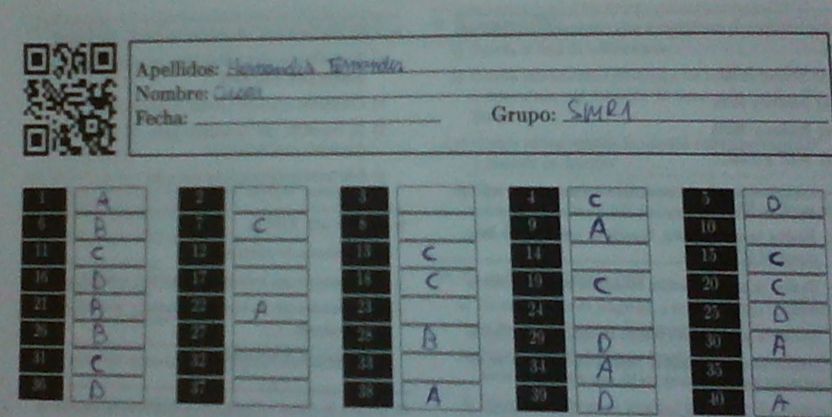 Apellidos: Hernandez Fernandez
Nombre:
Fecha:
Grupo: SMR1
1 A 2 3 4 C 5 D
6 B 7 C 8 9 A 10
11 C 12 13 C 14 15 C
16 D 17 18 C 19 C 20 C
21 B 22 A 23 24 25 D
26 B 27 28 B 29 D 30 A
31 C 32 33 34 A 35
36 D 37 38 A 39 D 40 A